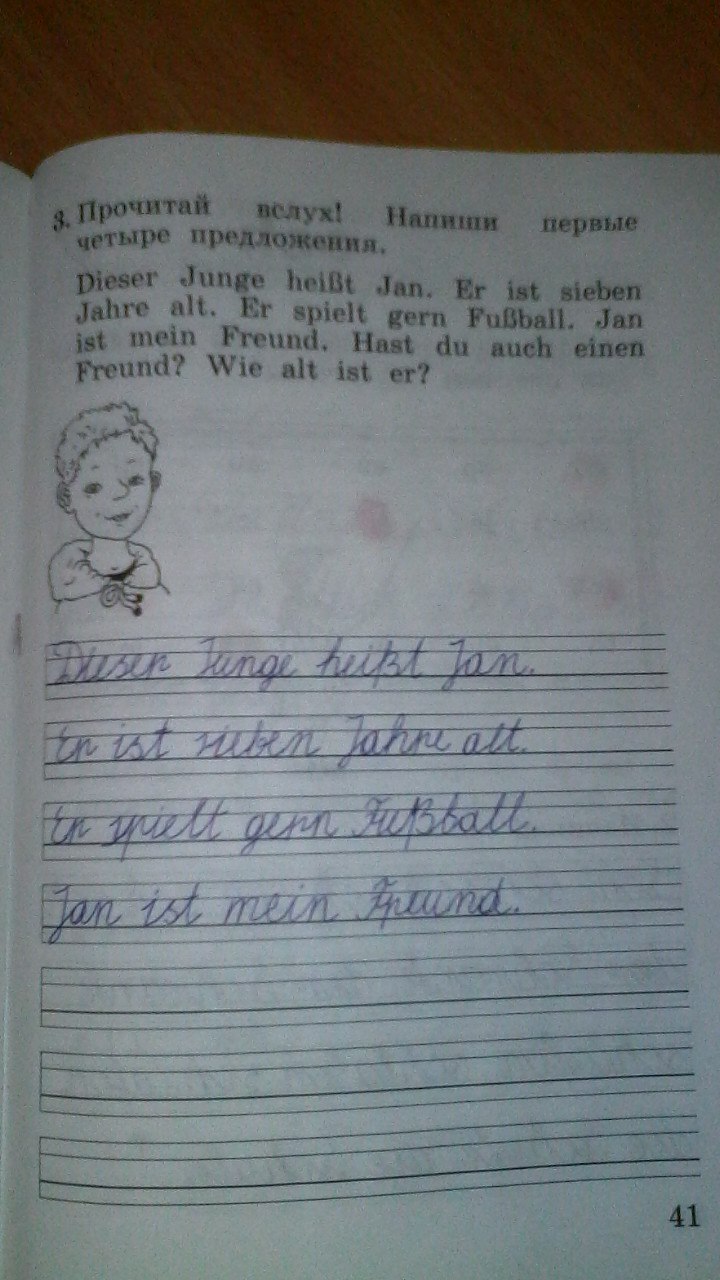 3. Прочитай вслух! Напиши первые
четыре предложения.
Dieser Junge heißt Jan. Er ist sieben
Jahre alt. Er spielt gern Fußball. Jan
ist mein Freund. Hast du auch einen
Freund? Wie alt ist er?
Dieser Junge heißt Jan.
Er ist sieben Jahre alt.
Er spielt gern Fußball.
Jan ist mein Freund.
41